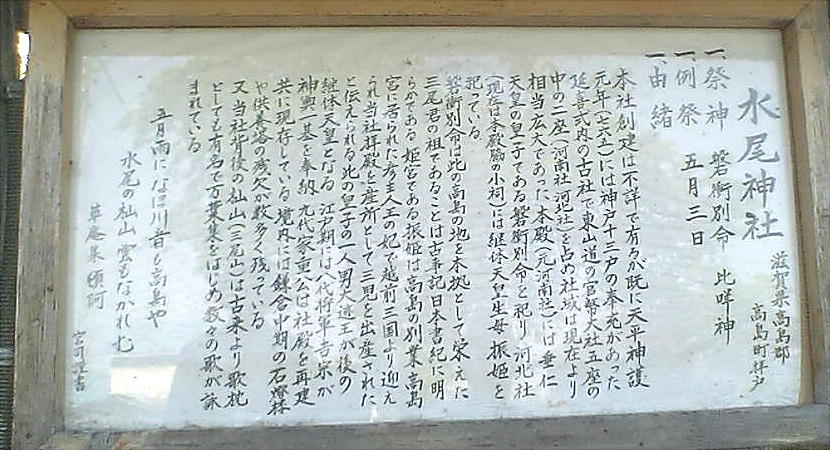 水尾神社
滋賀県高島郡
高島町拝戸
一、祭神 磐衝別命 比咩神
一、例祭 五月三日
一、由緒
本社創建は不詳で有るが既に天平神護
元年(七六五)には神戸十三戸の奉充があった
延喜式内の古社で東山道の官幣大社五座の
中の二座(河南社河北社)を占め社域は現在より
相当広大であった本殿(元河南社)には垂仁
天皇の皇子である磐衝別命を祀り河北社
(現在は本殿脇の小祠)には継体天皇生母振姫を
祀っている
磐衝別命は此の高島の地を本拠として栄えた
三尾君の祖であることは古事記日本書紀に明
らかである 姫宮である振姫は高島の別業高島
宮に居られた彦主人王の妃で越前三国より迎え
られ当社拝殿を産所として三児を出産された
と伝えられる此の皇子の一人男大迹王が後の
継体天皇となる 江戸期には八代将軍吉宗が
神輿一基を奉納 九代家重公は社殿を再建
共に現存している 境内には鎌倉中期の石燈篭
や供養塔の残欠が数多く残っている
又当社背後の杣山(三尾山)は古来より歌枕
としても有名で万葉集をはじめ数々の歌が詠
まれている
五月雨になほ川音も高島や
水尾の杣山 雲もなかれ
草庵集 頓阿
宮司謹書